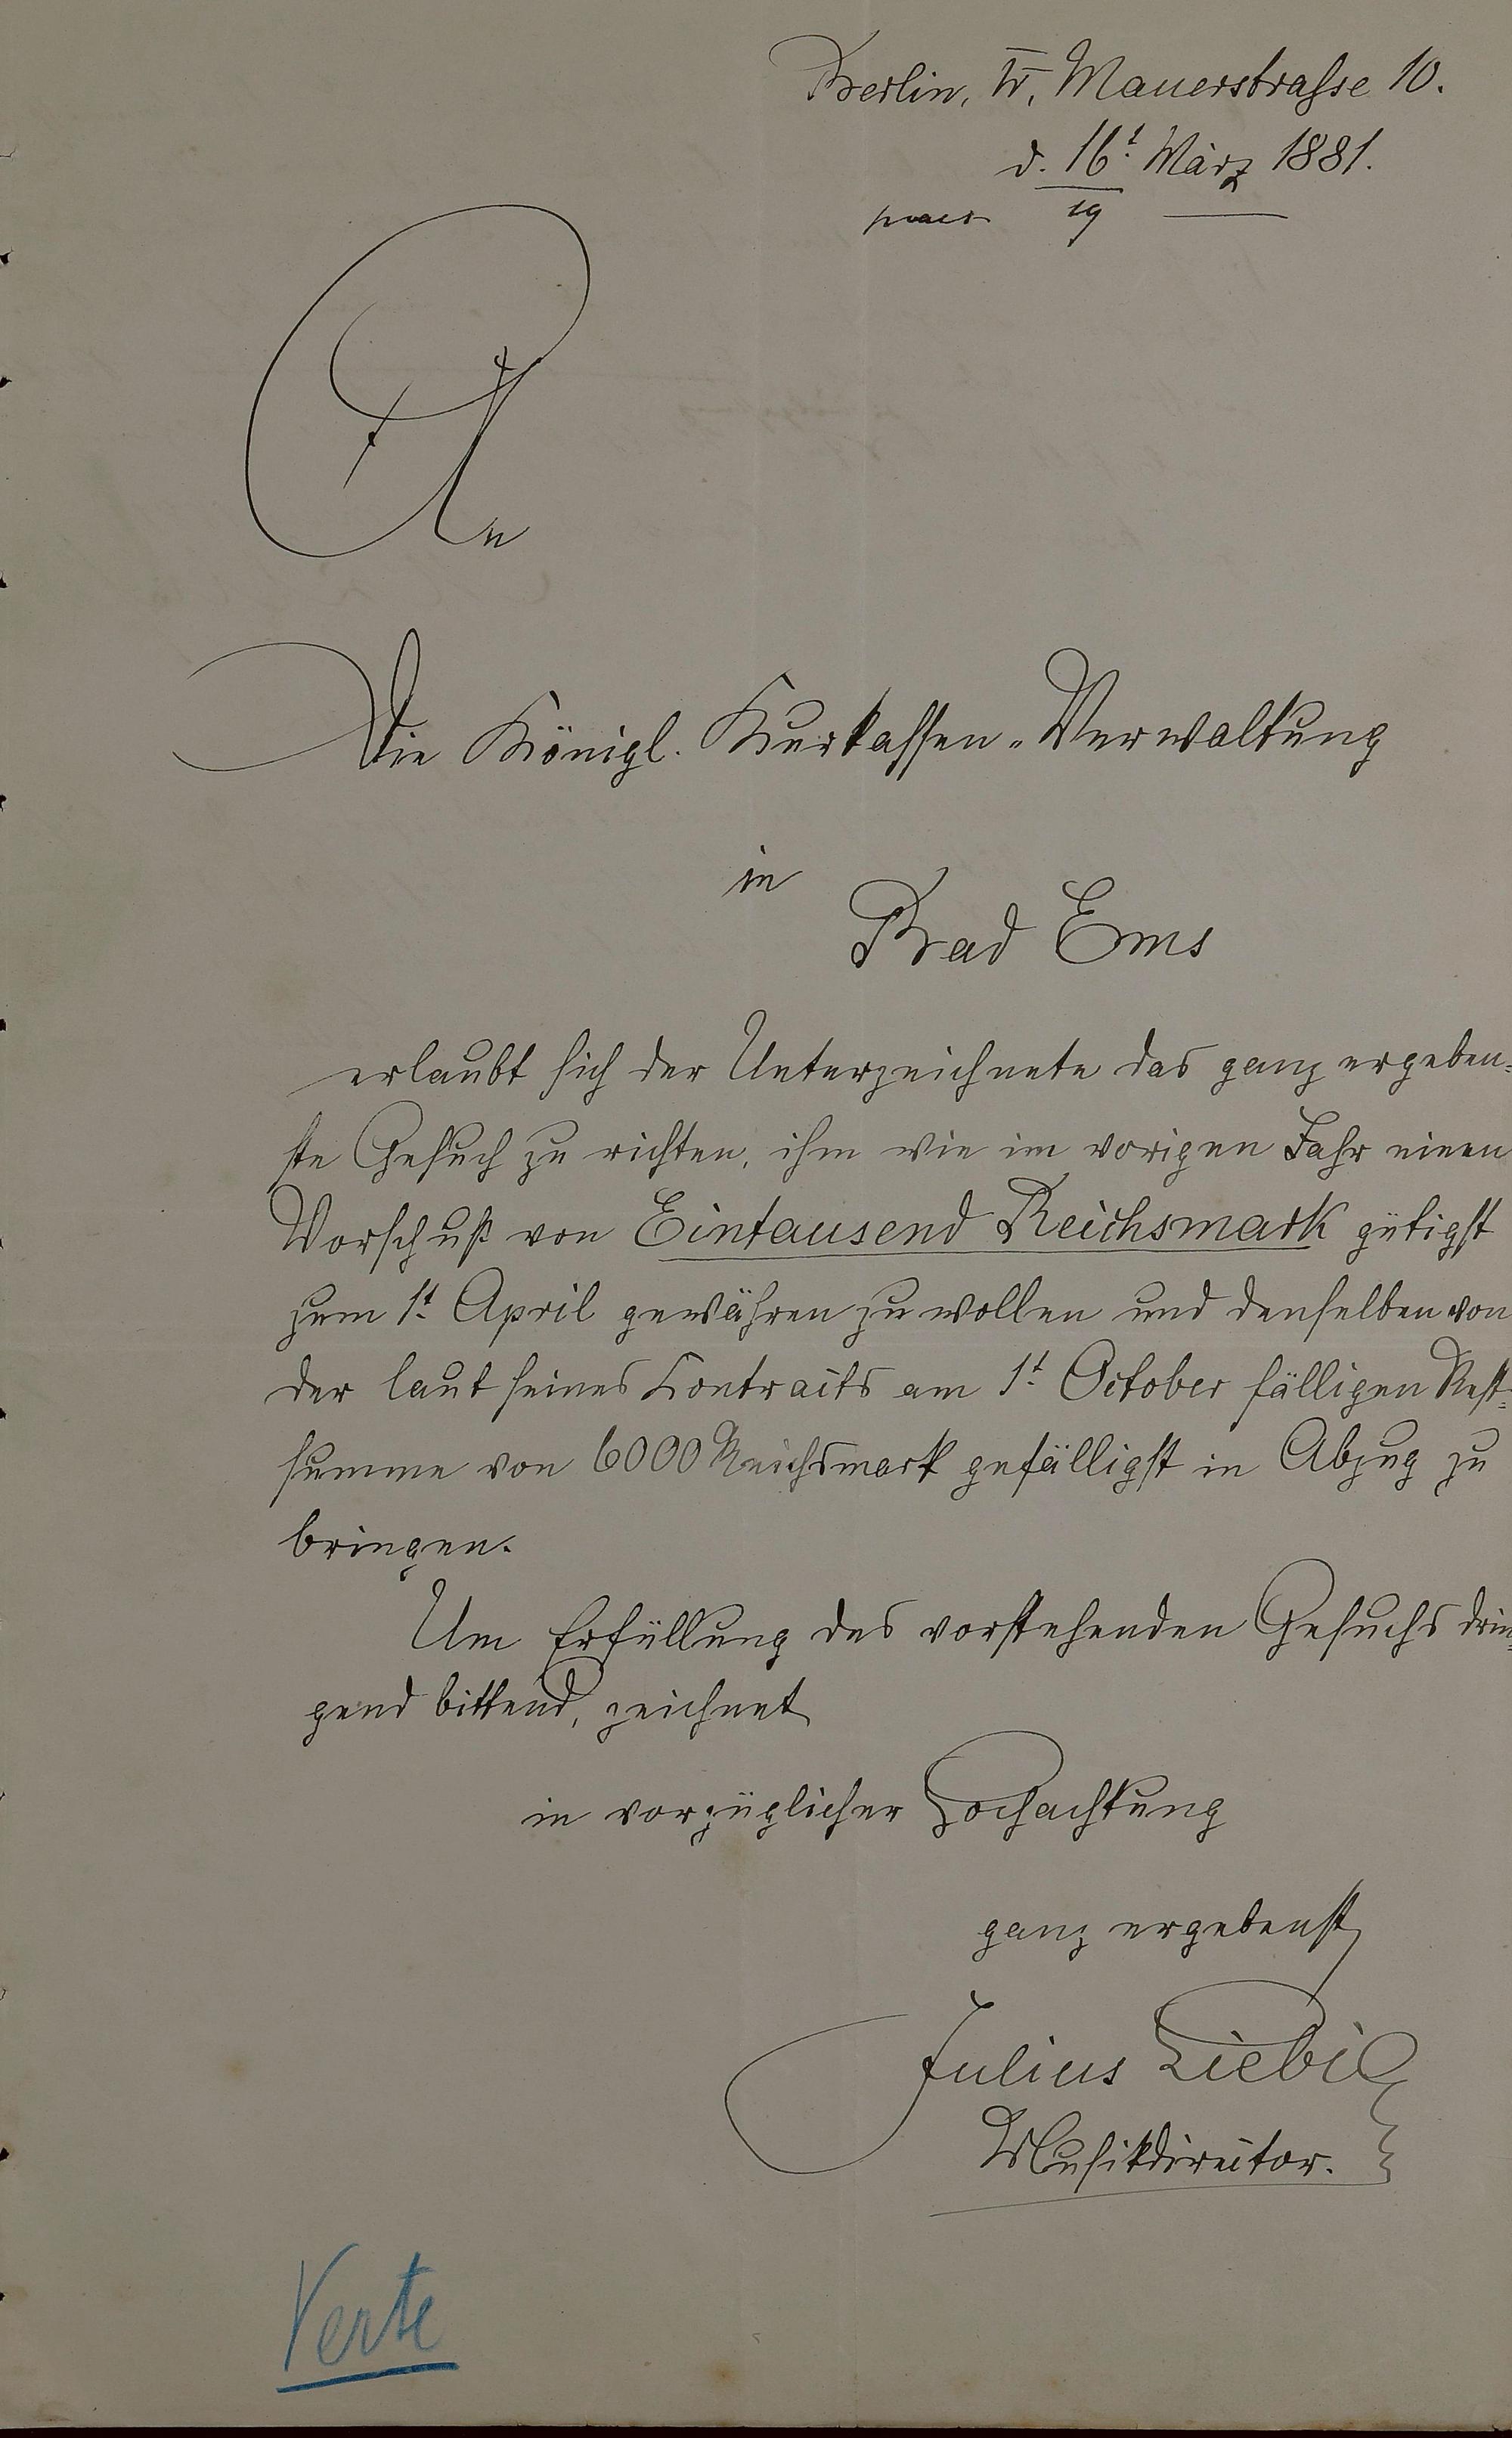 Berlin, W, Mauerstrasse 10.
d. 16t. März 1881.
praes 19
An
Die Königl. Kurkassen-Verwaltung
in
Bad Ems
erlaubt sich der Unterzeichnete das ganz ergeben-
ste Gesuch zu richten, ihm wie im vorigen Jahr einen
Vorschuß von Eintausend Reichsmark gütigst
zum 1t. April gewähren zu wollen und denselben von
der laut seines Contracts am 1t. October fälligen Rest-
summe von 6000 Reichsmark gefälligst in Abzug zu
bringen.
Um Erfüllung des vorstehenden Gesuchs drin-
gend bittend, zeichnet
in vorzüglicher Hochachtung
ganz ergebenst
Julius Liebig
Musikdirector.
Verte